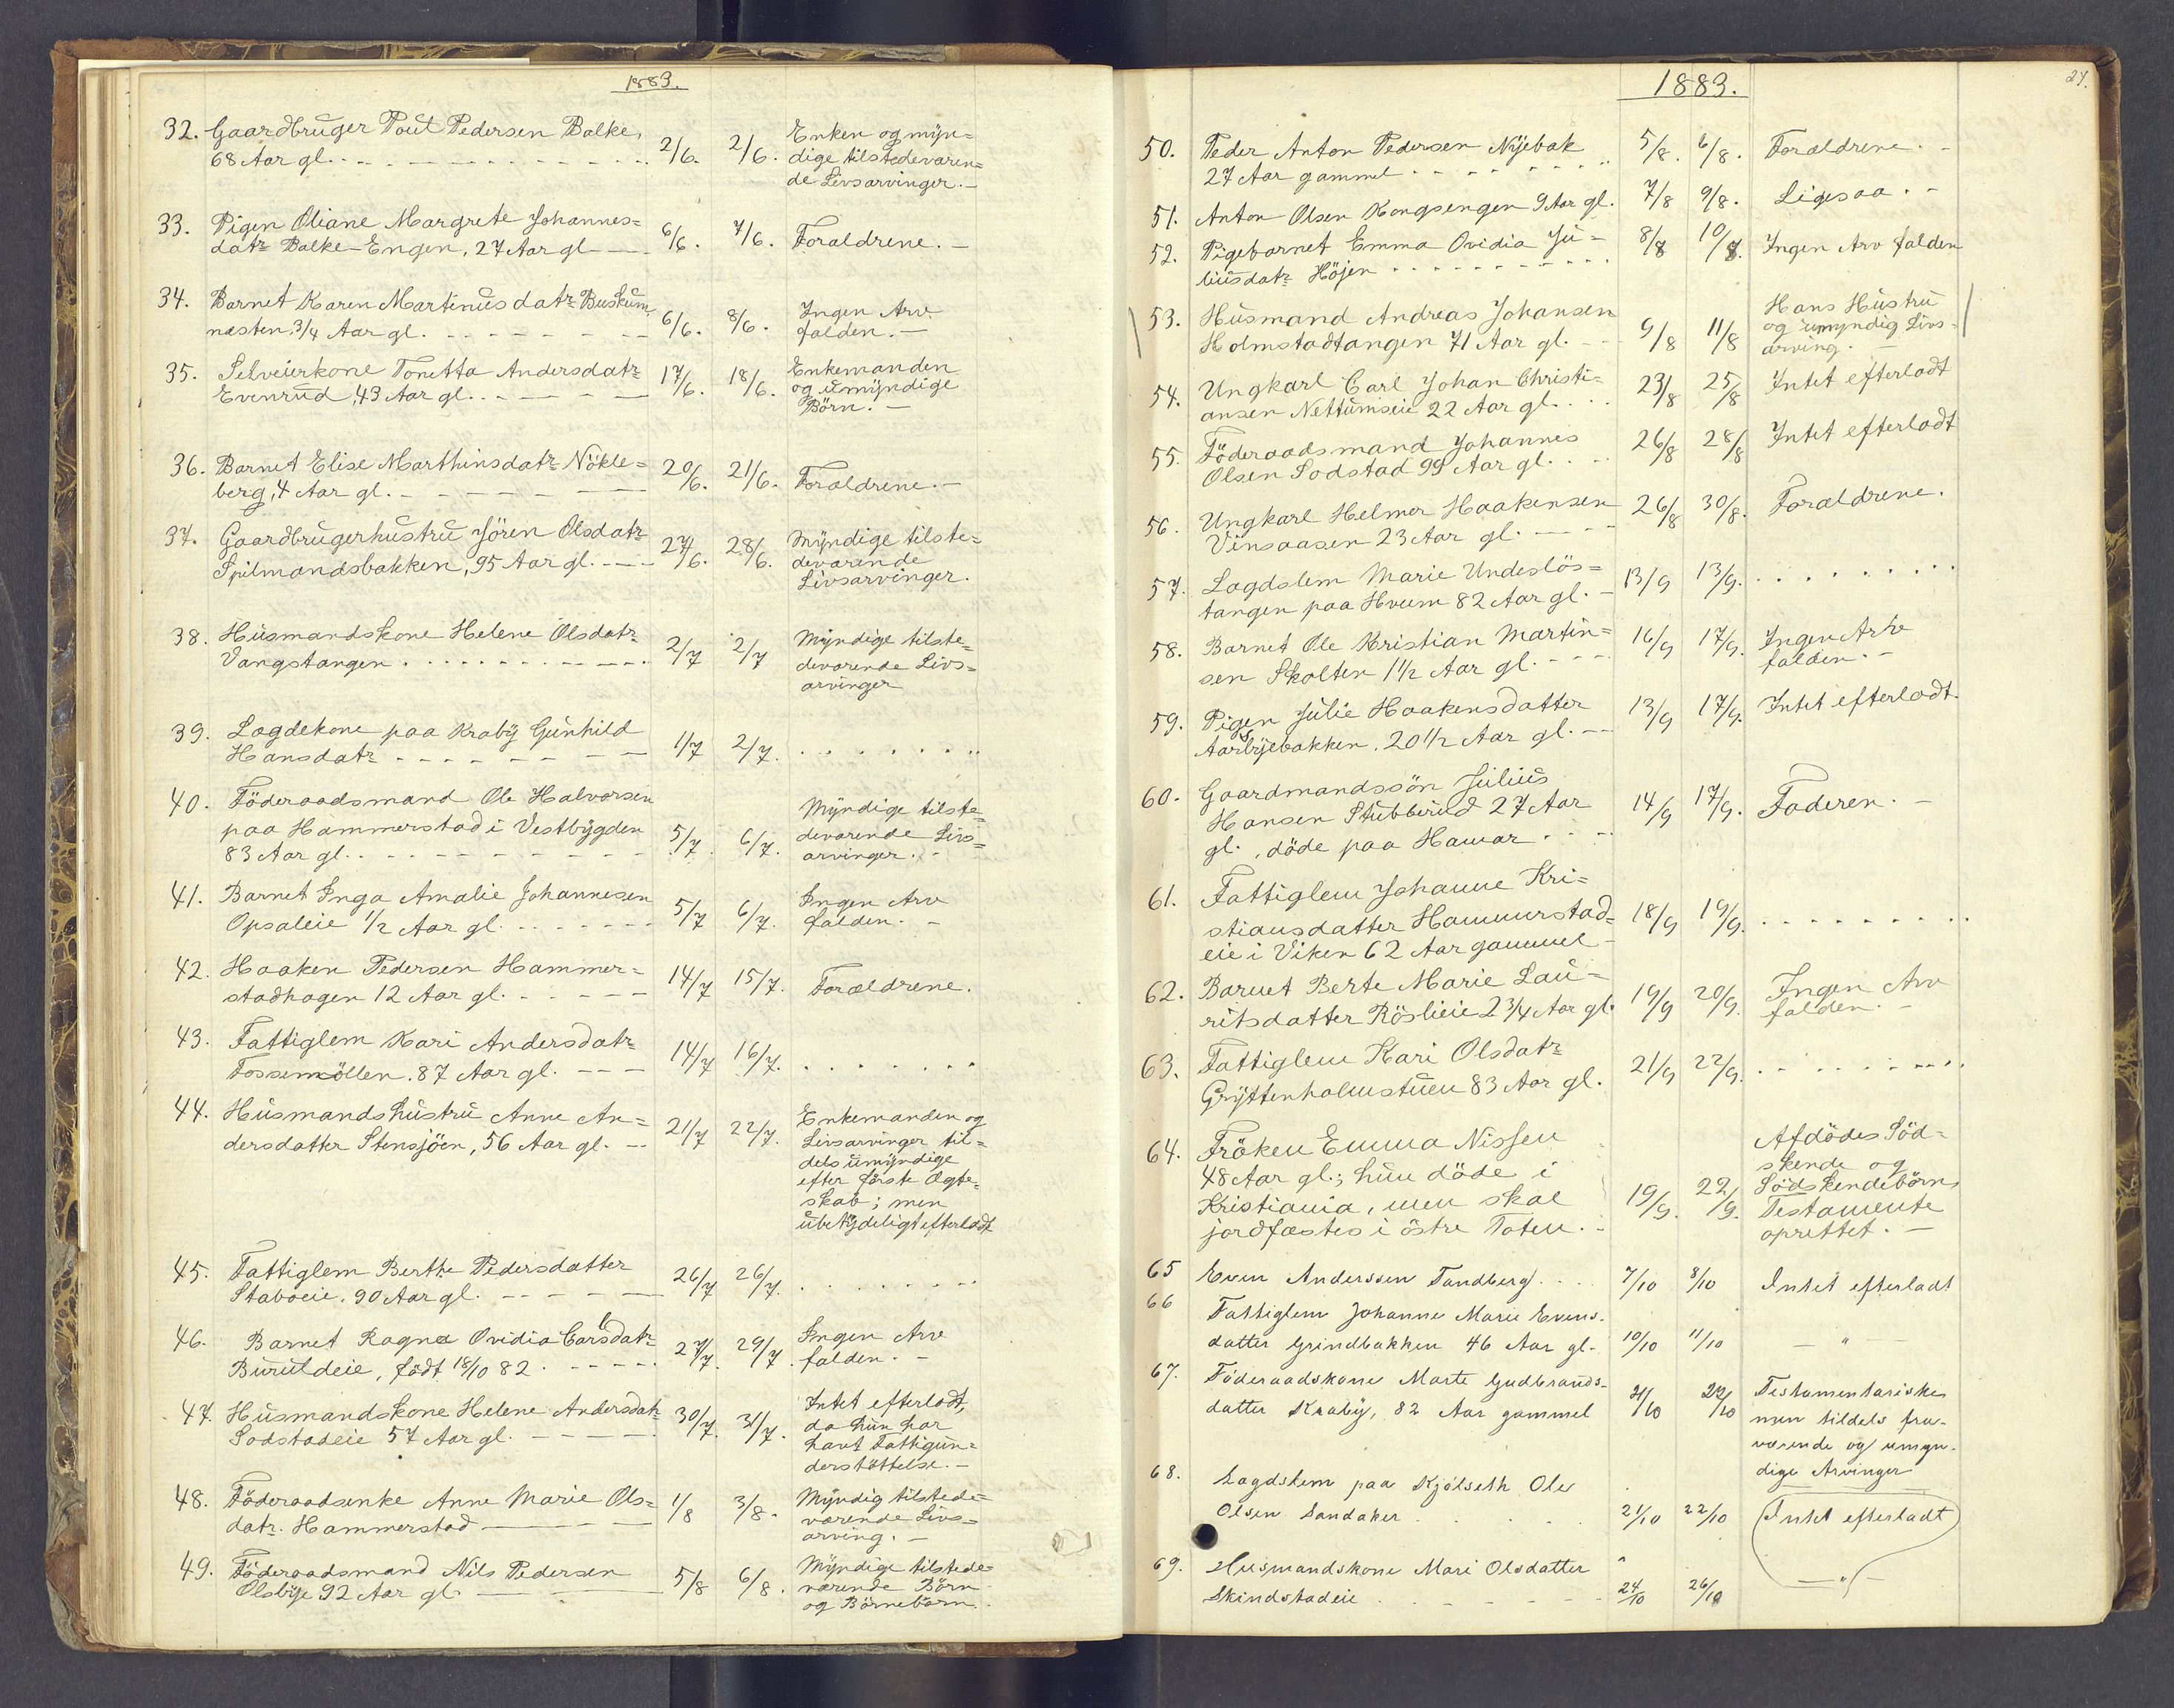 1883.
32. Gaardbruger Poul Pedersen Balke,
68 Aar gl. 2/6. 2/6. Enken og myn-
dige tilstedeværen-
de Livsarvinger.
33. Pigen Oliane Margrete Johannes-
datr Balke-Engen, 27 Aar gl 6/6. 7/6. Forældrene.
34. Barnet Karen Martinusdatr Buskum,
næsten 3/4 Aar gl. 6/6. 8/6. Ingen Arv
falden.
35. Selveierkone Tonetta Andersdatr
Evenrud, 43 Aar gl. 17/6. 18/6. Enkemanden
og umyndige
Börn.
36. Barnet Elise Marthinsdatr Nökle-
berg, 4 Aar gl. 20/6. 21/6. Forældrene.
37. Gaardbrugerhustru Jören Olsdatr
Spilmandsbakken, 95 Aar gl. 27/6. 28/6. Myndige tilste-
deværende
Livsarvinger.
38. Husmandskone Helene Olsdatr
Vangstangen 2/7 2/7 Myndige tilste-
deværende Livs-
arvinger
39. Lægdekone paa Kraby Gunhild
Hansdatr 1/7 2/7.
40. Föderaadsmand Ole Halvorsen
paa Hammerstad i Vestbygden
83 Aar gl. 5/7. 6/7. Myndige tilste-
deværende Livs-
arvinger.
41. Barnet Inga Amalie Johannesen
Opsaleie 1/2 Aar gl. 5/7 6/7. Ingen Arv
falden.
42. Haaken Pedersen Hammer-
stadhagen 12 Aar gl. 14/7 15/7. Forældrene.
43. Fattiglem Kari Andersdatr
Fossemöllen. 87 Aar gl. 14/7 16/7.
44. Husmandshustru Anne An-
dersdatter Stensjöen, 56 Aar gl. 21/7 22/7. Enkemanden og
Livsarvinger til-
dels umyndige
efter første Ægte-
skab; men
ubetydeligt efterladt
45. Fattiglem Berthe Pedersdatter
Staboeie. 90 Aar gl. 26/7 26/7.
46. Barnet Ragna Ovidia Carlsdatr
Buruldeie, födt 18/10 82. 27/7. 29/7. Ingen Arv
falden.
47. Husmandskone Helene Andersdatr
Sodstadeie 57 Aar gl. 30/7. 31/7. Intet efterladt,
da hun har
havt Fattigun-
derstöttelse.
48. Föderaadsenke Anne Marie Ols-
datr. Hammerstad 1/8 3/8. Myndig tilstede-
værende Livs-
arving.
49. Föderaadsmand Nils Pedersen
Olsbye 92 Aar gl. 5/8 6/8. Myndige tilstede-
værende Börn
og Börnebörn.
1883.
27.
50. Peder Anton Pedersen Nyebak
27 Aar gammel 5/8. 6/8. Forældrene.
51. Anton Olsen Kongsengen 9 Aar gl. 7/8 9/8. Ligesaa.
52. Pigebarnet Emma Ovidia Ju-
liusdatr Höjen 8/8 10/8. Ingen Arv falden
53. Husmand Andreas Johansen
Holmstadtangen 71 Aar gl. 9/8 11/8 Hans Hustru
og umyndig Livs-
arving.
54. Ungkarl Carl Johan Christi-
ansen Nettumseie 22 Aar gl. 23/8 25/8 Intet efterladt
55. Föderaadsmand Johannes
Olsen Sodstad 99 Aar gl. 26/8 28/8 Intet efterladt
56. Ungkarl Helmer Haakensen
Vinsaasen 23 Aar gl. 26/8 30/8. Forældrene.
57. Lægdslem Marie Undeslös-
tangen paa Hveem 82 Aar gl. 13/9 13/9.
58. Barnet Ole Kristian Martin-
sen Skolten 1 1/2 Aar gl. 16/9 17/9. Ingen Arv
falden.
59. Pigen Julie Haakensdatter
Aarbyebakken. 20 1/2 Aar gl. 13/9 17/9. Intet efterladt.
60. Gaardmandssön Julius
Hansen Stubberud 27 Aar
gl., döde paa Hamar 14/9 17/9. Faderen.
61. Fattiglem Johanne Kri-
stiansdatter Hammerstad-
eie i Viken 62 Aar gammel 18/9 19/9.
62. Barnet Berte Marie Lau-
ritsdatter Röslieie 2 3/4 Aar gl. 19/9 20/9. Ingen Arv
falden.
63. Fattiglem Kari Olsdatr
Gryttenholmstuen 83 Aar gl. 21/9 22/9.
64. Fröken Emma Nissen
48 Aar gl.; hun döde i
Kristiania, men skal
jordfæstes i östre Toten. 19/9. 22/9. Afdödes Söd-
skende og
Södskendebörn,
Testamente
oprettet.
65 Even Anderssen Tandberg. 7/10 8/10 Intet efterladt
66 Fattiglem Johanne Marie Evens-
datter Grindbakken 46 Aar gl. 10/10 11/10 — " —
67. Föderaadskone Marte Gudbrands-
datter Kraby, 82 Aar gammel 21/10 22/10 Testamentariske
men tildels fra-
værende og umyn-
dige Arvinger
68. Lægdslem paa Kjölseth Ole
Olsen Sandaker 21/10 22/10 Intet efterladt
69. Husmandskone Mari Olsdatter
Skindstadeie 24/10 26/10 — " —